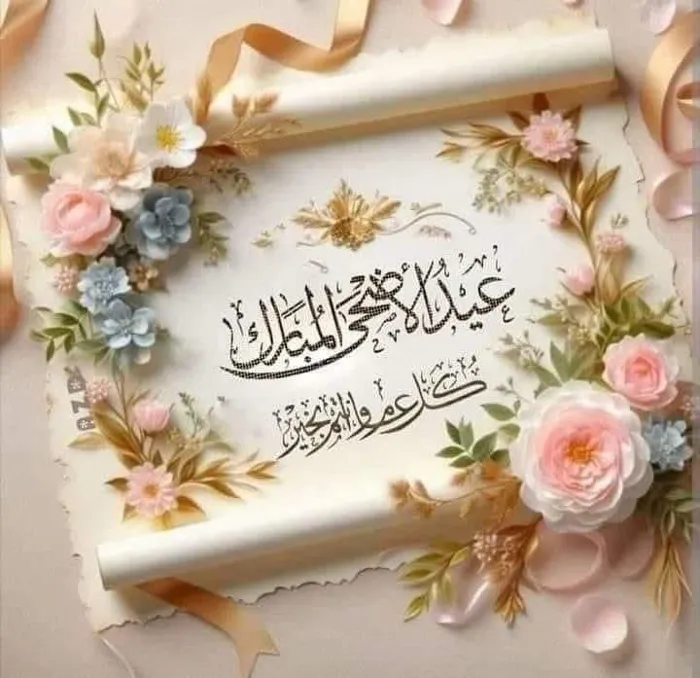 عيد الأضحى المبارك
كل عام وانتم بخير